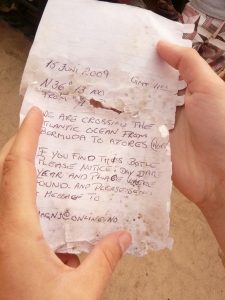 15 JUNI 2009
N36° 13.100
WE ARE CROSSING THE
ATLANTIC OCEAN FROM
BERMUDA TO AZORES
IF YOU FIND THIS BOTTLE
PLEASE NOTICE: DAY DATE
YEAR AND PLACE WHERE
FOUND. AND PLEASE
MESSAGE TO
ONLINE.NO